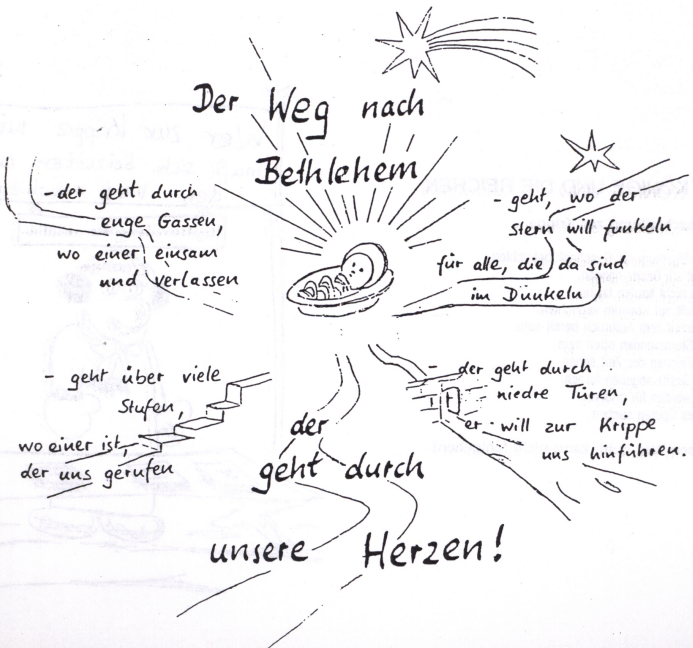 Der Weg nach
Bethlehem
- der geht durch
enge Gassen,
wo einer einsam
und verlassen
- geht, wo der
Stern will funkeln
für alle, die da sind
im Dunkeln
- geht über viele
Stufen,
wo einer ist,
der uns gerufen
- der geht durch
niedre Türen,
er will zur Krippe
uns hinführen.
der
geht durch
unsere Herzen!